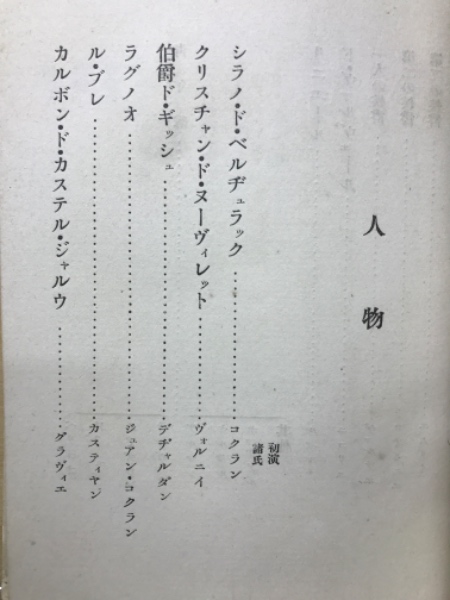 人物
初演
諸氏
シラノ・ド・ベルヂュラック……………………コクラン
クリスチャン・ド・ヌーヴィレット……………ヴォルニイ
伯爵ド・ギッシュ……………………………デヂャルダン
ラグノオ……………………………………ジュアン・コクラン
ル・ブレ……………………………………カスティヤン
カルボン・ド・カステル・ジャルウ……………グラヴィエ